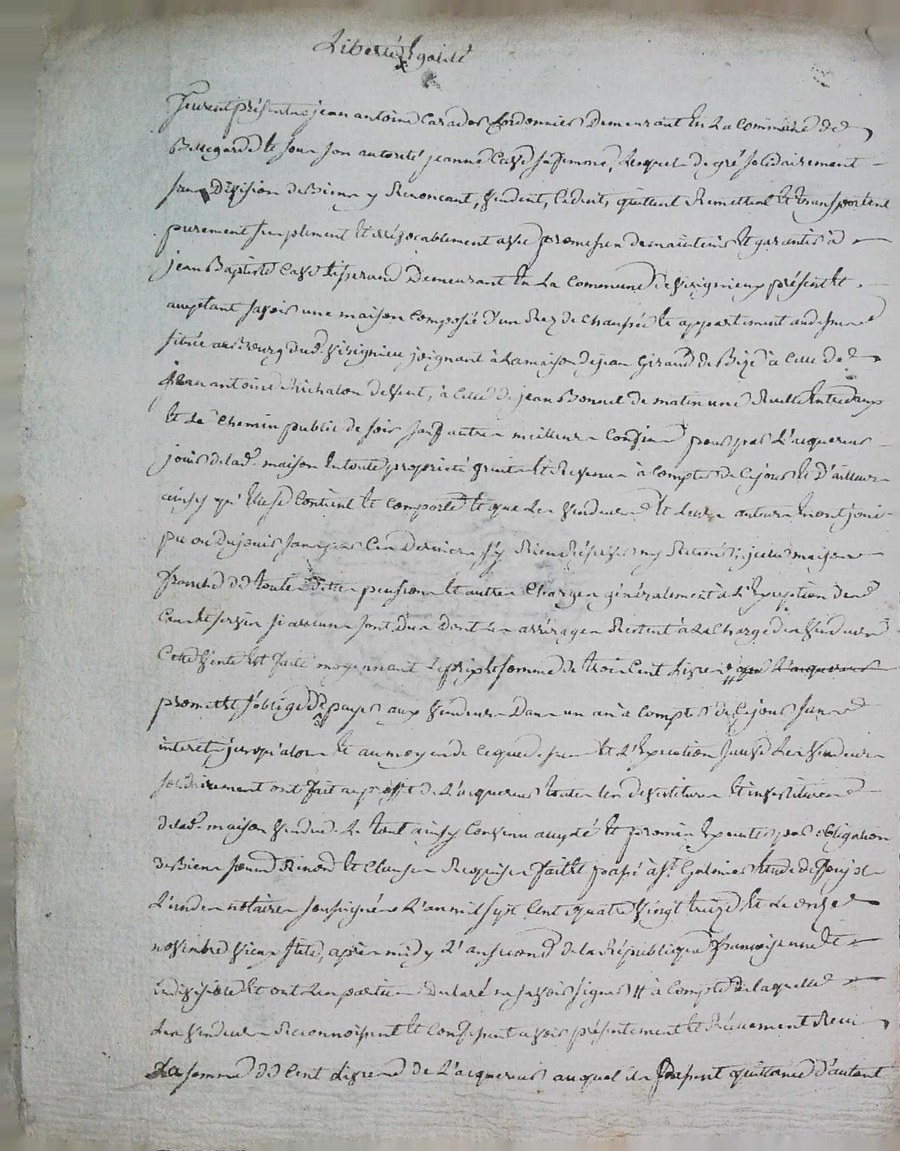 Liberté Egalité
furent présents jean antoine Carados Cordonnier Demeurant En La Commune de
Bellegarde Et sous son autorité jeanne Cave sa femme, Lesquels de gré solidairement
sans Division de Biens y Renoncant, Vendent, Cedent, quittent Remettent Et transportent
purement simplement Et irrévocablement avec promesse de maintenir Et garantir à
jean Baptiste Cave tisserand Demeurant En La Commune de Virignieux présent Et
acceptant savoir une maison Composée d'un Rez de Chaussée Et appartement au dessus
située au Bourg dud. Virignieu joignant à La maison de jean Girard de Bize à Celle de
jean antoine Michalon de Vent, à Celle de jean Bonnel de matin une Ruelle Entredeux
Et Le Chemin public de soir sauf autres meilleurs Confins pour par L'acquereur
jouir de lad. maison En toute propriété fruits Et Revenus à Compter de Ce jour Et D'ailleurs
ainsy qu'Elle se Contient Et Comporte Et que Les Vendeurs Et Leurs auteurs En ont joui
pu ou Du jouir sans par Ces Derniers s'y Rien Réserver ny Retenir, jcelle maison
franche de toutes Dettes pensions Et autres Charges généralement à L'Exception de
Cens Et servis si aucuns sont dus Dont Les arrérages Restent à La Charge des Vendeurs
Cette Vente Est faite moyennant Le prix Et somme de trois Cent Livres # que L'acquereur
promet Et s'oblige de payer aux Vendeurs Dans un an à Compter de Ce jour sans
interet jusqu'alors Et au moyen de Ce que dessus Et L'Execution sauve Les Vendeurs
solidairement ont fait au profit de L'acquereur toutes Les devestitures Et investitures
de lad. maison Vendue Le tout ainsy Convenu accepté Et promis Executer par obligation
de Biens soum. Renonc. Et Clauses Requises fait Et passé à St. Galmier Etude de Ponjol
L'un des notaires soussignés L'an mil sept Cent quatre Vingt treize Et Le onze
novembre Vieux stile, après midy L'an second de la République francoise une Et
indivisible Et ont Les parties declaré ne savoir signer # à Compte de laquelle
Les Vendeurs Reconnoissent Et Confessent avoir présentement Et Réellement Recu
La somme de Cent Livres de L'acquereur auquel ils passent quittance d'autant